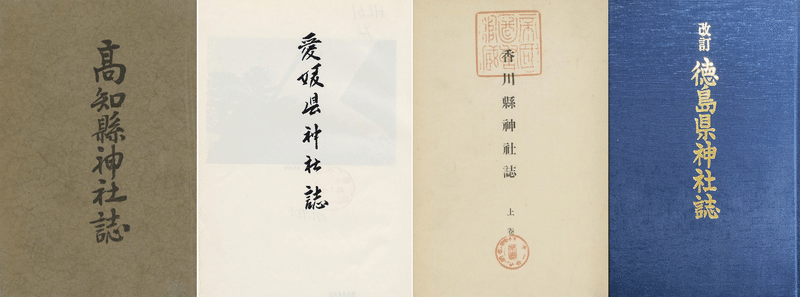 高知縣神社誌
愛媛県神社誌
香川縣神社誌
上卷
改訂
徳島県神社誌